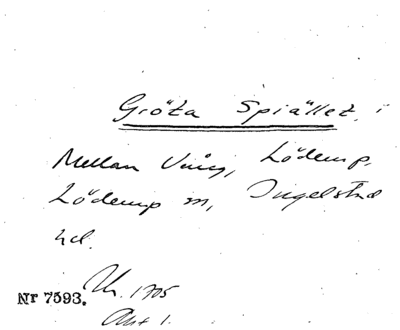 Gröta Spiället, i
Mellan Vång, Löderup,
Löderup sn, Ingelstad
hd.
Nr 7593. Uh. 1705
Akt 1.